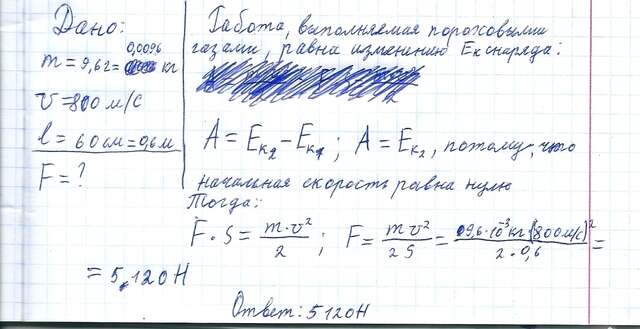 Дано:
m = 9,6г = 0,0096 кг
v = 800 м/с
l = 60 см = 0,6 м
F = ?
Работа, выполняемая пороховыми
газами, равна изменению Eк снаряда:
A = Eк₂ - Eк₁ ; A = Eк₂, потому, что
начальная скорость равна нулю
Тогда:
F · S = m · v² / 2 ; F = m v² / 2 S = 9,6 · 10⁻³ кг (800 м/с)² / 2 · 0,6 =
= 5,120 Н
Ответ: 5120 Н